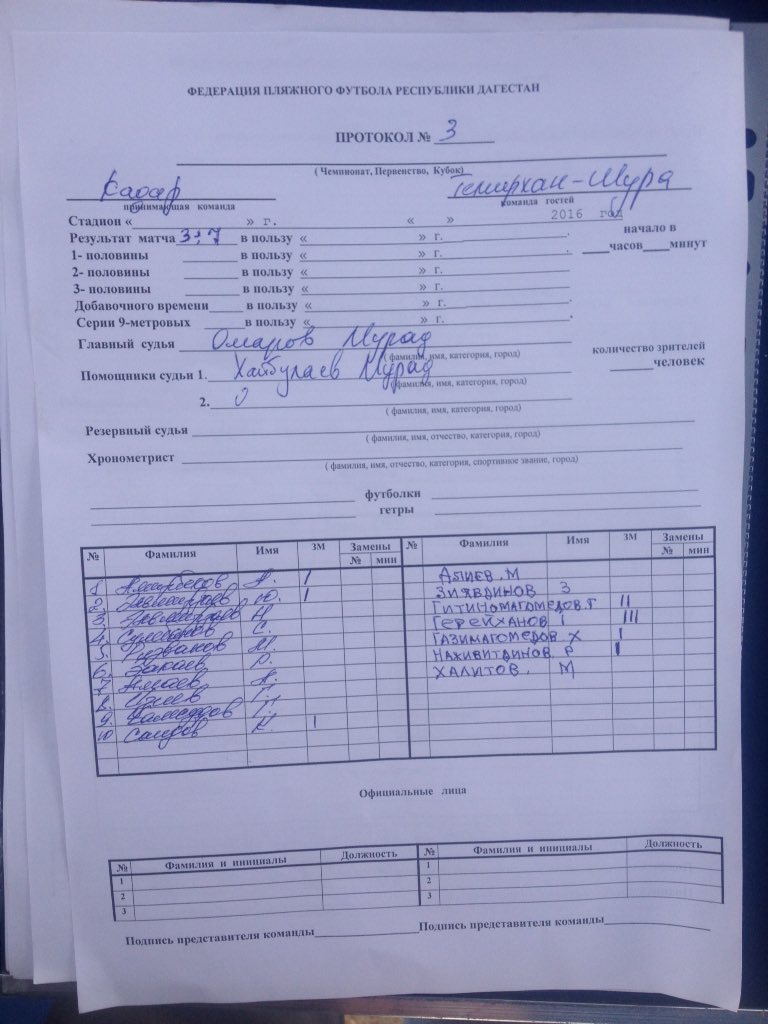 ФЕДЕРАЦИЯ ПЛЯЖНОГО ФУТБОЛА РЕСПУБЛИКИ ДАГЕСТАН
ПРОТОКОЛ № 3
( Чемпионат, Первенство, Кубок)
Кадар Темирхан-Шура
принимающая команда команда гостей
Стадион « » г. « » 2016 год
Результат матча 3:7 в пользу « » г. начало в
1- половины в пользу « » г. часов минут
2- половины в пользу « » г.
3- половины в пользу « » г.
Добавочного времени в пользу « » г.
Серии 9-метровых в пользу « » г.
Главный судья Омаров Мурад
( фамилия, имя, категория, город) количество зрителей
Помощники судьи 1. Хайбулаев Мурад человек
( фамилия, имя, категория, город)
2.
( фамилия, имя, категория, город)
Резервный судья
( фамилия, имя, отчество, категория, город)
Хронометрист
( фамилия, имя, отчество, категория, спортивное звание, город)
футболки
гетры
№ Фамилия Имя ЗМ Замены № Фамилия Имя ЗМ Замены
№ мин № мин
1 А. I АЛИЕВ. М
2 Ю. I ЗИЯВДИНОВ З
3 ГИТИНОМАГОМЕДОВ. Г II
4 Сулейманов С. ГЕРЕЙХАНОВ III
5 ГАЗИМАГОМЕДОВ. Х I
6 Закаев Р. НАЖИВИТДИНОВ Р I
7 А. ХАЛИТОВ. М
8
9
10 Саидов К. I
Официальные лица
№ Фамилия и инициалы Должность № Фамилия и инициалы Должность
1 1
2 2
3 3
Подпись представителя команды Подпись представителя команды